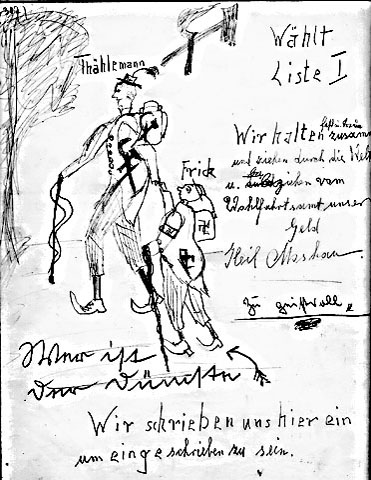 Wählt
Liste I
Thählemann
Wir halten fest u. treu zusamm
und ziehen durch die Welt
u. ziehen vom
Wohlfahrtsamt unser
Geld
Heil Moskau.
Frick
Wer ist
der Dümste
Wir schrieben uns hier ein
um eingeschrieben zu sein.